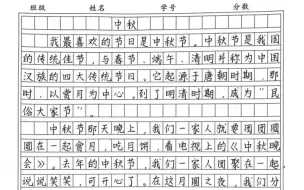 班级 姓名 学号 分数
中秋
我最喜欢的节日是中秋节。中秋节是我国
的传统佳节，与春节、端午、清明并称为中国
汉族的四大传统节日。它起源于唐朝时期，那
时，以赏月为中心。到了明清时期，成为“民
俗大家节”。
中秋节那天晚上，我们一家人就要团团圆
圆在一起赏月，吃月饼，看电视上的《中秋晚
会》。去年的中秋节，我们一家人团聚在一起
说说笑笑，可开心了。在这月圆之夜，我们分